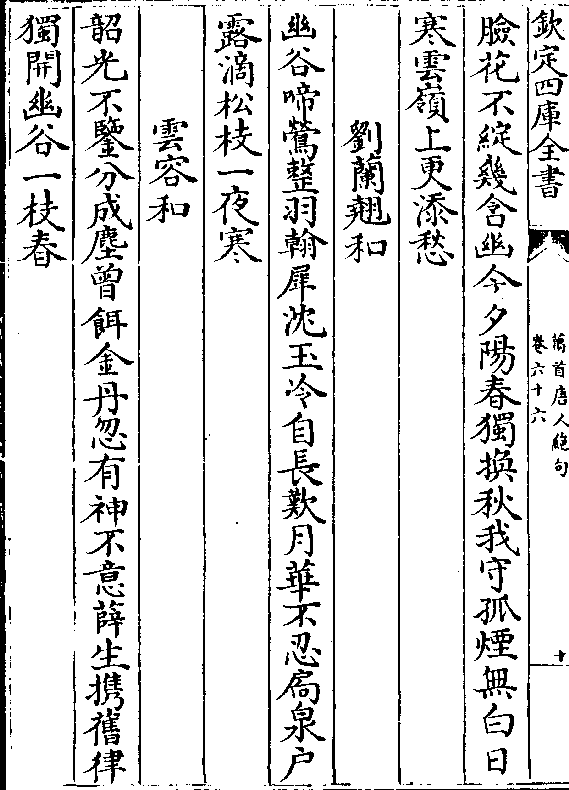 欽定四庫全書
萬首唐人絶句
卷六十六
十
臉花不綻幾含幽今夕陽春獨換秋我守孤煙無白日
寒雲嶺上更添愁
劉蘭翹和
幽谷啼鶯整羽翰犀沈玉冷自長歎月華不忍扃泉户
露滴松枝一夜寒
雲容和
韶光不鑒分成塵曾餌金丹忽有神不意薛生携舊律
獨開幽谷一枝春